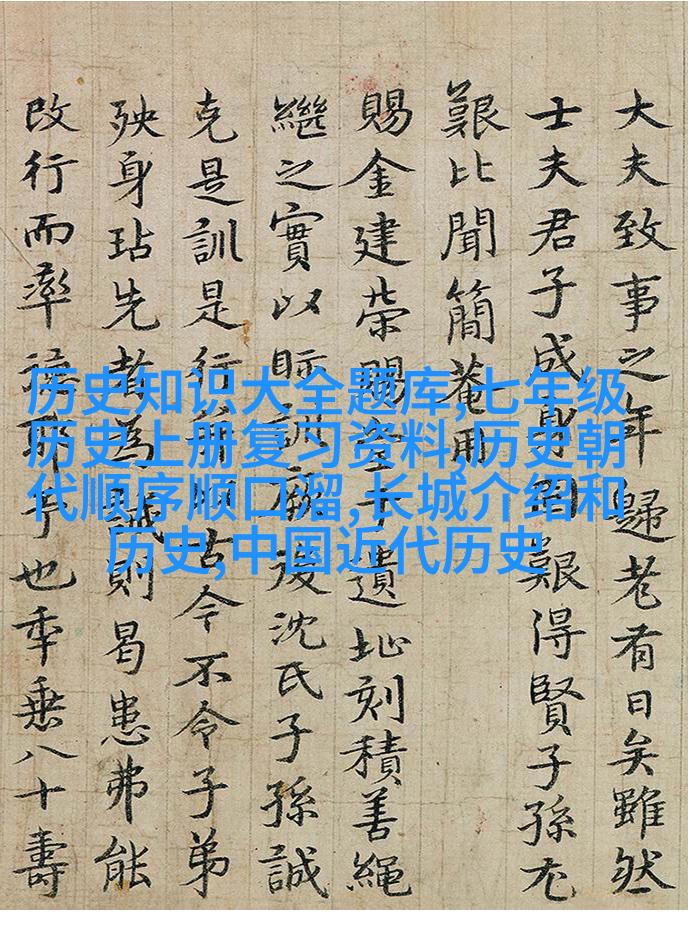 大夫致事之年歸老有日矣雖然
士夫君子成身固艱得賢子孫尤
艱比聞簡菴用
賜金建榮賜堂于遺址刻積善繩
繼之實以眎訓厥後沈氏子孫誠
克是訓是行毋順古今不令子弟
殃身玷先者為誡則曷患弗能
改行而率耶予也年垂八十壽
历史知识大全题库,七年级
历史上册复习资料,历史朝
代顺序顺口溜,长城介绍和
历史,中国近代历史